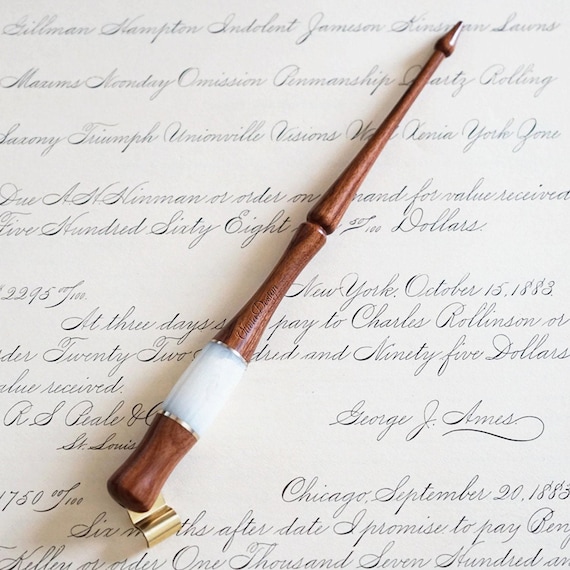 Gillman Hampton Indolent Jameson Kinsman Lawns
Maxims Noonday Omission Penmanship Quartz Rolling
Saxony Triumph Unionville Visions Xenia York Zone
Due A. H. Hinman or order on mand for value received
Five Hundred Sixty Eight 50/100 Dollars.
$2295 00/100. New York, October 15, 1883.
At three days pay to Charles Rollinson or
der Twenty Two and and Ninety five Dollars
alue received.
R S Peale & C George J. Ames.
St. Louis
1750 00/100 Chicago, September 20, 1883
Six ths after date I promise to pay Benj
Kelley or order One Thousand Seven Hundred and